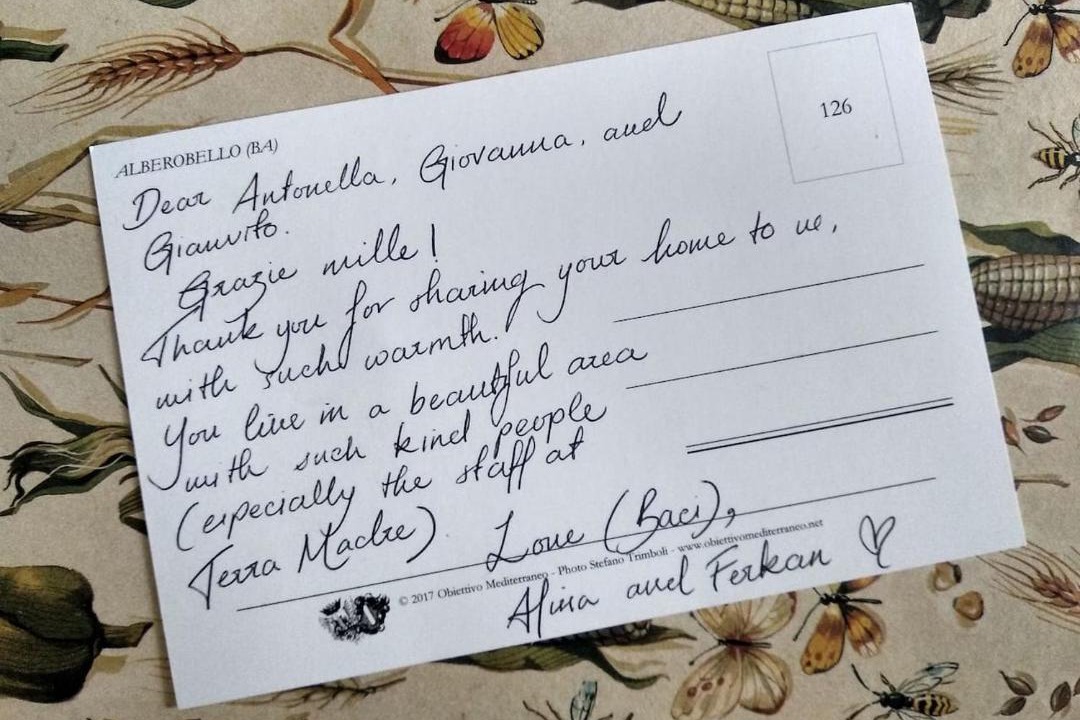 ALBEROBELLO (BA)
126
Dear Antonella, Giovanna, and
Gianvito.
Grazie mille!
Thank you for sharing your home to us,
with such warmth.
You live in a beautiful area
with such kind people
(especially the staff at
Terra Madre). Love (Baci),
© 2017 Obiettivo Mediterraneo - Photo Stefano Trimboli - www.obiettivomediterraneo.net
Alina and Ferkan ♡